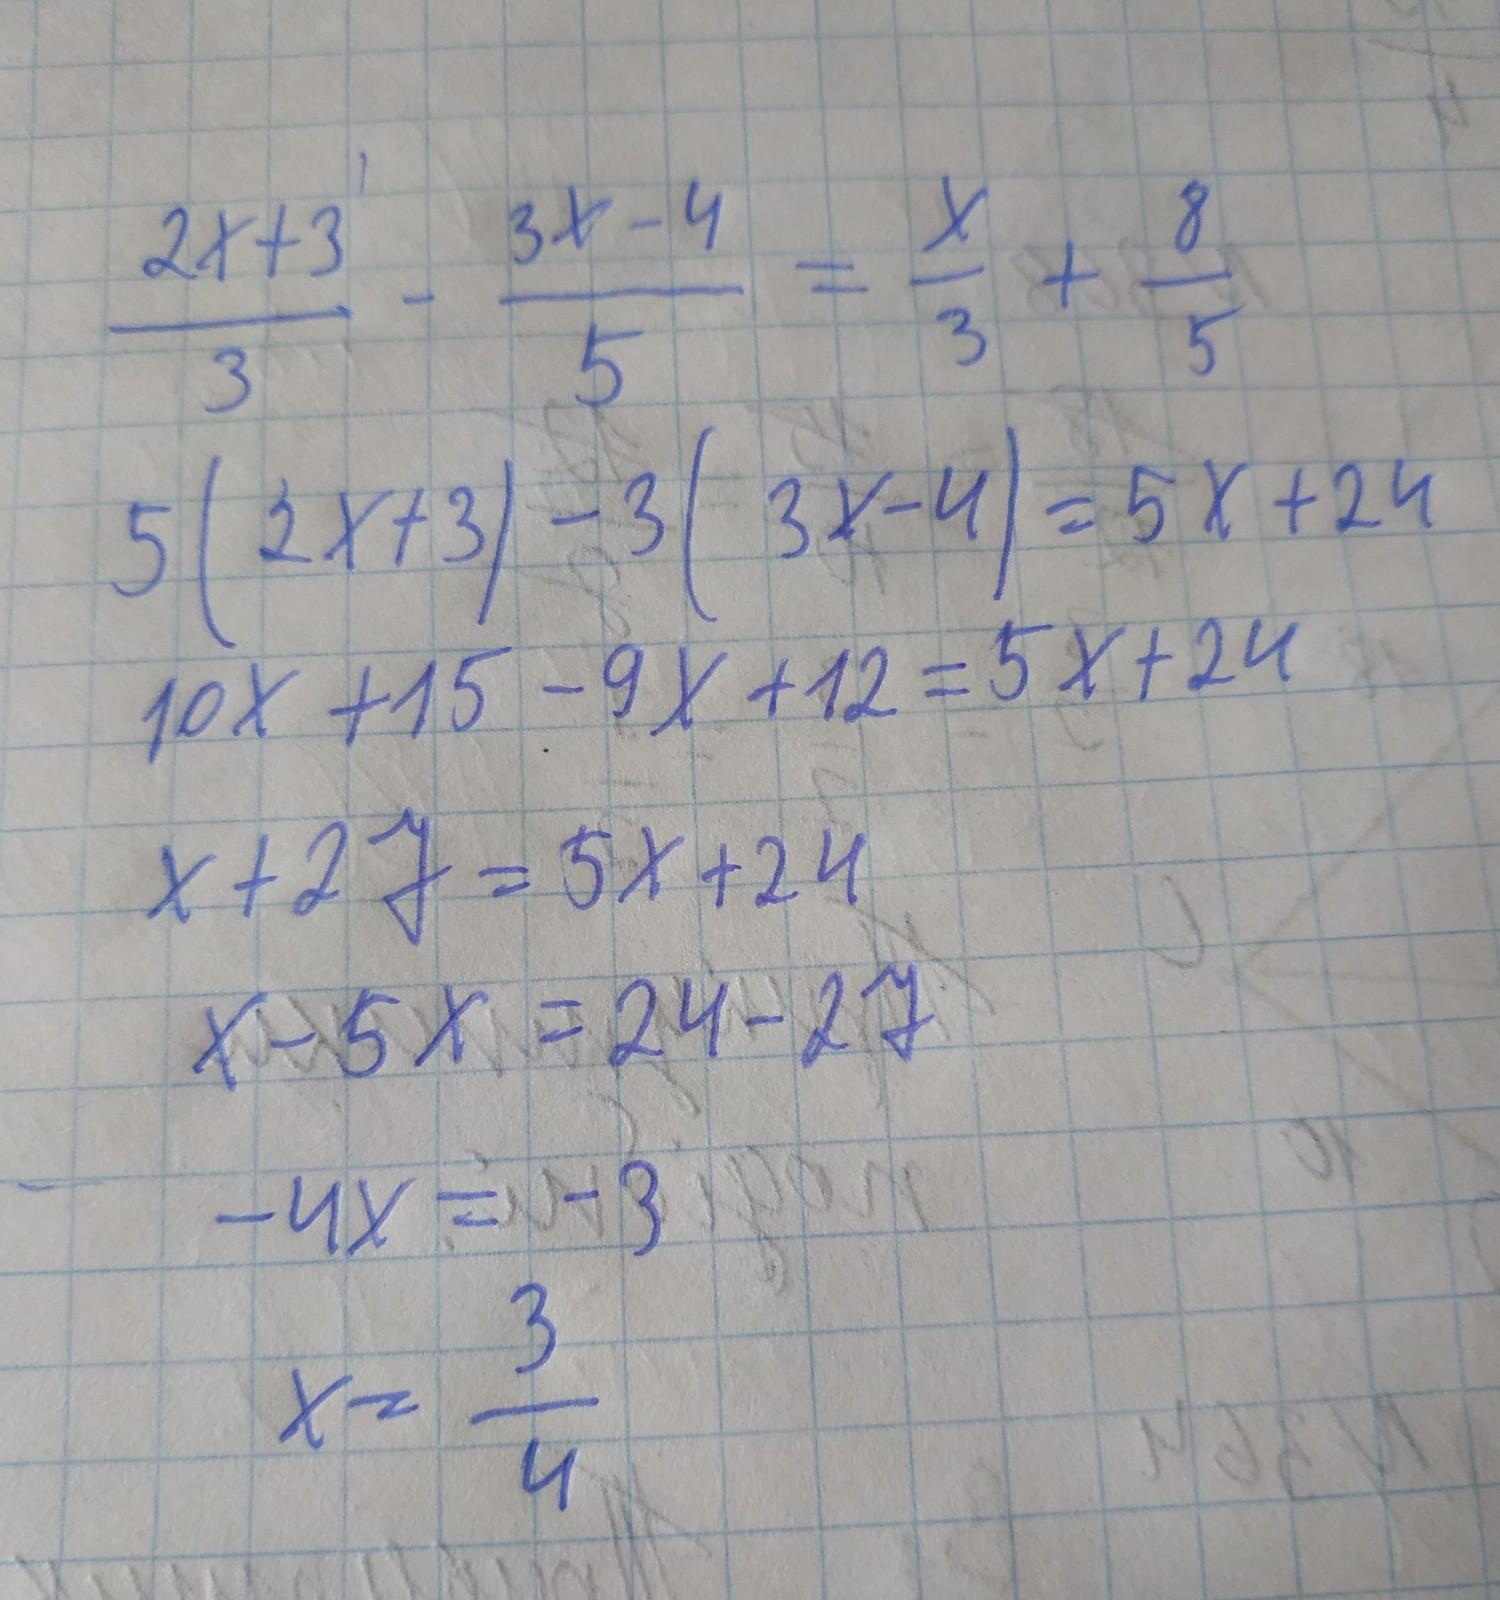 (2x+3)/3 - (3x-4)/5 = x/3 + 8/5
5(2x+3)-3(3x-4)=5x+24
10x+15-9x+12=5x+24
x+27=5x+24
x-5x=24-27
-4x=-3
x=3/4
N364